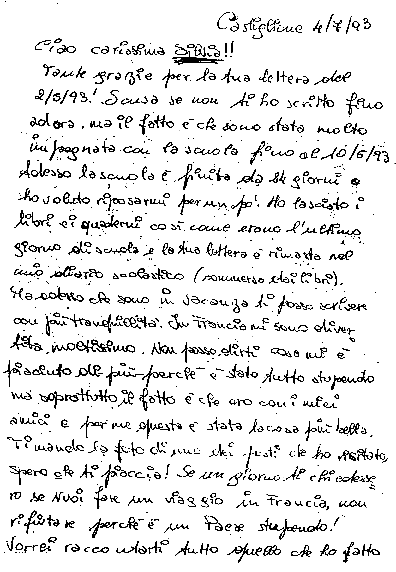 Castiglione 4/7/93
Ciao carissima Silvia!!
Tante grazie per la tua lettera del
2/5/93! Scusa se non ti ho scritto fino
adora, ma il fatto è che sono stata molto
impegnata con la scuola fino al 10/6/93
Adesso la scuola è finita da 24 giorni e
ho voluto riposarmi per un pò. Ho lasciato i
libri ei quaderni così come erano l'ultimo
giorno di scuola e la tua lettera è rimasta nel
mio diario scolastico (sommerso dai libri).
Ma adesso che sono in vacanza ti posso scrivere
con più tranquillità. In Francia mi sono diver
tita moltissimo. Non posso dirti cosa mi è
piaciuto di più perchè è stato tutto stupendo
ma soprattutto il fatto è che ero con i miei
amici e per me questa è stata la cosa più bella.
Ti mando la foto di uno dei posti che ho visitato,
spero che ti piaccia! Se un giorno ti chiedesse
ro se vuoi fare un viaggio in Francia, non
rifiutare perchè è un Paese stupendo!
Vorrei raccontarti tutto quello che ho fatto